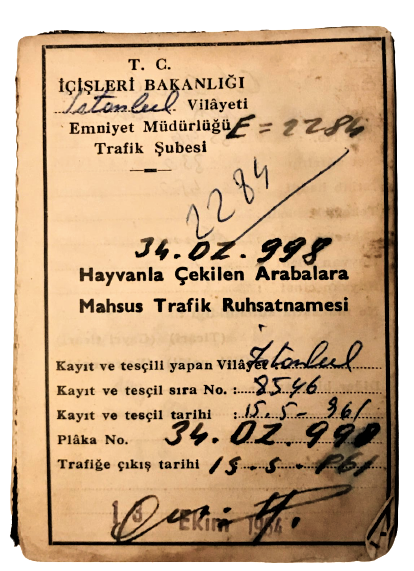 T. C.
İÇİŞLERİ BAKANLIĞI
İstanbul Vilâyeti
Emniyet Müdürlüğü E = 2284
Trafik Şubesi
2284
34. DZ. 998
Hayvanla Çekilen Arabalara
Mahsus Trafik Ruhsatnamesi
Kayıt ve tesçili yapan Vilâyet İstanbul
Kayıt ve tesçil sıra No. : 8546
Kayıt ve tesçil tarihi : 15. 5 - 961
Plâka No. 34. DZ. 998
Trafiğe çıkış tarihi 15. 5. 961
13 Ekim 1964